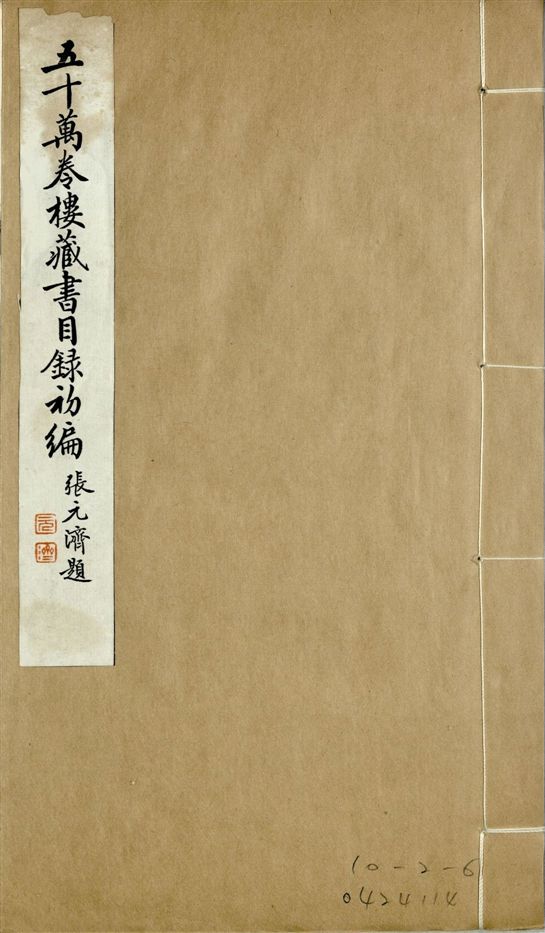 五十萬卷樓藏書目録初編
張元濟題
元
濟
10-2-6
0424114